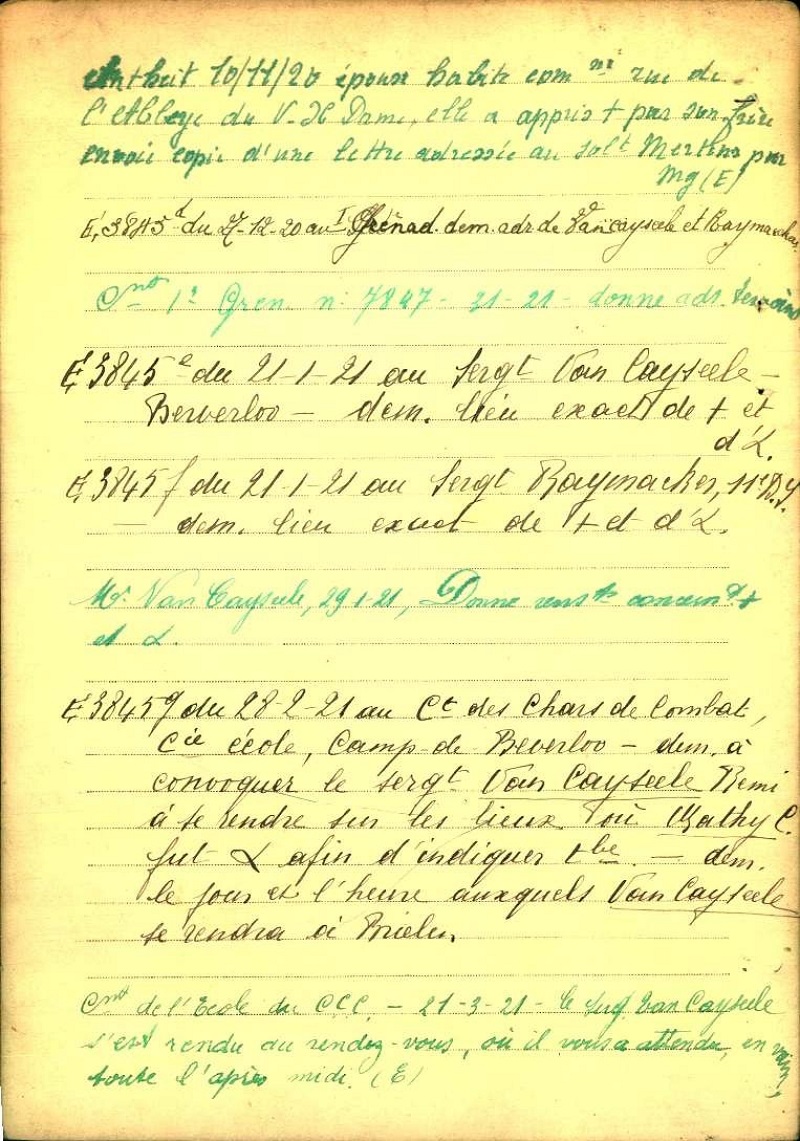 Antheit 10/11/20 épouse habite com ne rue de
l'Abbaye du V. N Dame, elle a appris + par son frère
envoie copie d'une lettre adressée au solt Mertens par
Mg (E)
E, 3845 d du 27-12-20 au I Grenad. dem. adr. de Van Cayseele et Raymackers
Cmt 1r Gren. n: 7847 - 21-21 - donne adr. témoins
E, 3845 e du 21-1-21 au Sergt Van Cayseele -
Beverloo - dem. lieu exact de + et
d'α.
E, 3845 f du 21-1-21 au Sergt Raymackers,
- dem. lieu exact de + et d'α.
Mr Van Cayseele, 29-1-21, Donne renste concernt +
et α.
E, 3845 g du 28-2-21 au Ct des Chars de Combat,
Cie école, Camp de Beverloo - dem. à
convoquer le sergt Van Cayseele Remi
à se rendre sur les lieux où Mathy C.
fut α afin d'indiquer tbe. - dem.
le jour et l'heure auxquels Van Cayseele
se rendra à Brielen.
Cmt de l'Ecole du CCC. - 21-3-21 - le Sergt Van Cayseele
s'est rendu au rendez-vous, où il vous a attendu, en vain,
toute l'après midi. (E)